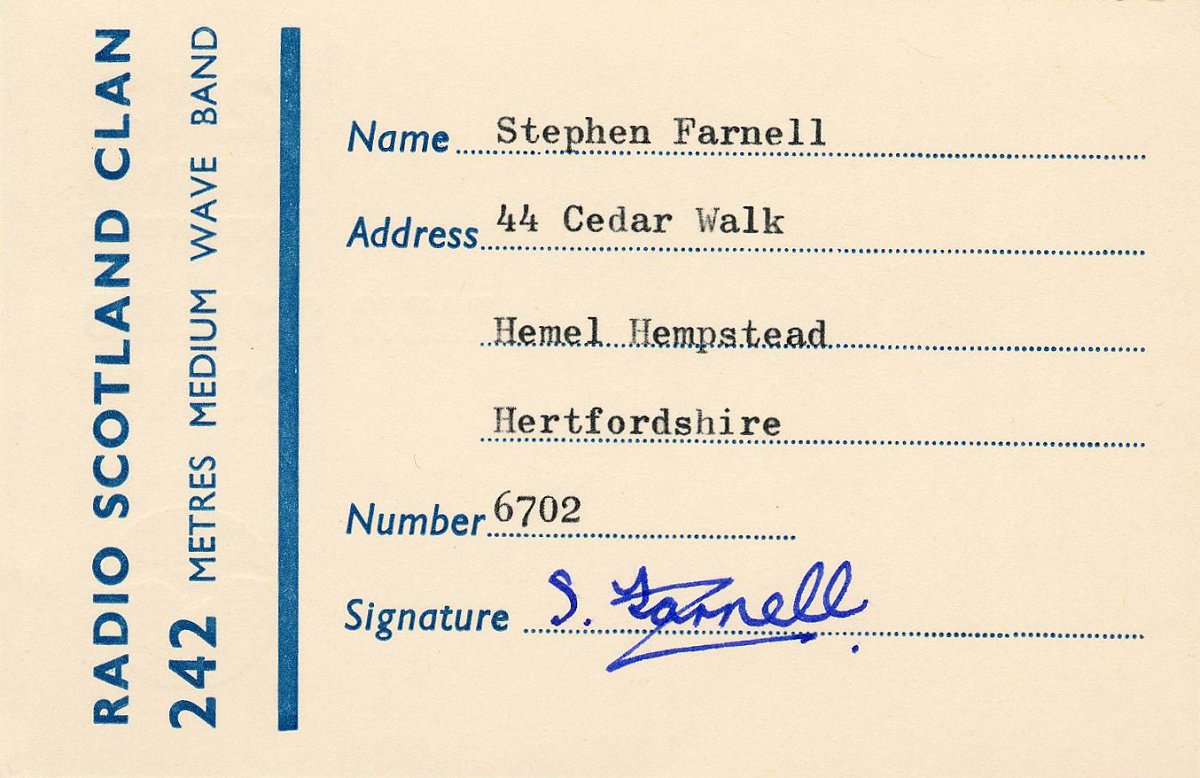 RADIO SCOTLAND CLAN
242 METRES MEDIUM WAVE BAND
Name Stephen Farnell
Address 44 Cedar Walk
Hemel Hempstead
Hertfordshire
Number 6702
Signature S. Farnell